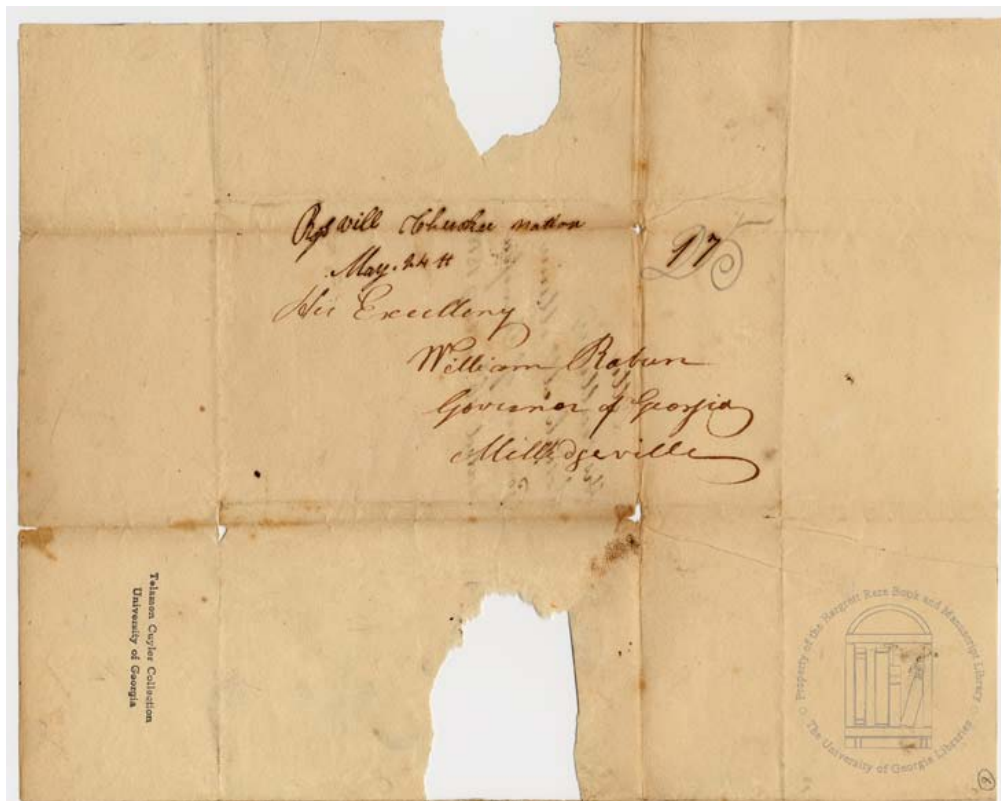 Rossvill Cherokee nation
May. 24th
His Excellency
William Rabun
Governor of Georgia
Milledgeville
17
25
Telamon Cuyler Collection
University of Georgia
Property of the Hargrett Rare Book and Manuscript Library
The University of Georgia Libraries
2